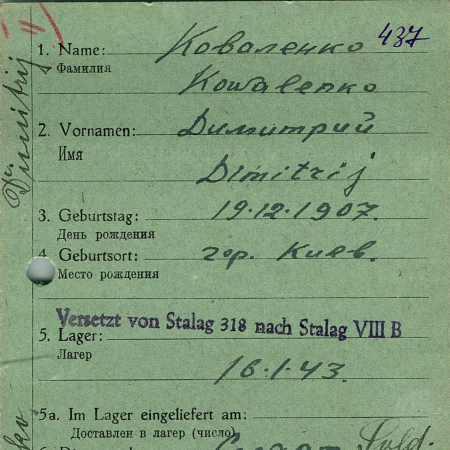 437
1. Name: Коваленко
Фамилия
Kowalenko
2. Vornamen: Димитрий
Имя
Dimitrij
3. Geburtstag: 19.12.1907.
День рождения
4. Geburtsort: гор. Киев.
Место рождения
Versetzt von Stalag 318 nach Stalag VIII B
5. Lager:
Лагер
16.1.43.
5a. Im Lager eingeliefert am:
Доставлен в лагер (число)
Sold.
Dimitrij